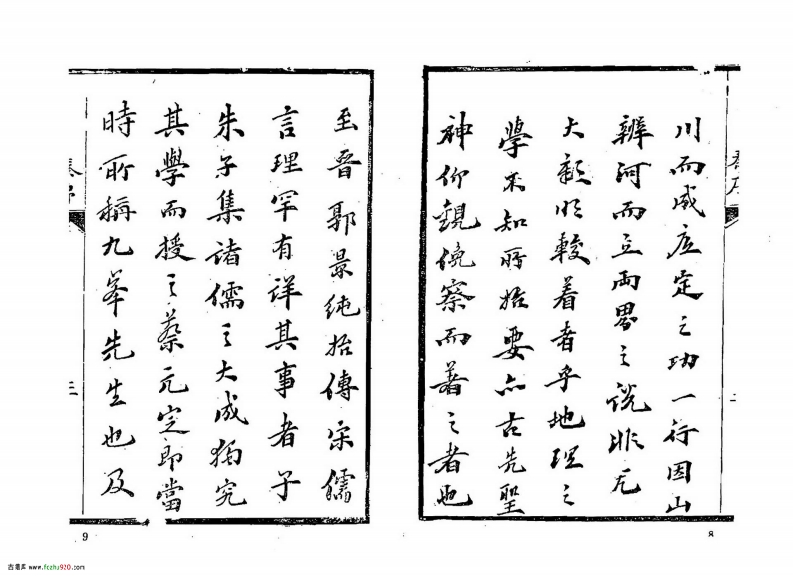 川而成底定之功一行因山
辨河而立兩界之說非尤
大彰明較着者乎地理之
學不知所始要亦古先聖
神仰觀俛察而著之者也
8
至晉郭景純始傳宋儒
言理罕有詳其事者子
朱子集諸儒之大成獨究
其學而授之蔡元定即當
時所稱九峯先生也及
三
9
古易库 www.fczhu920.com